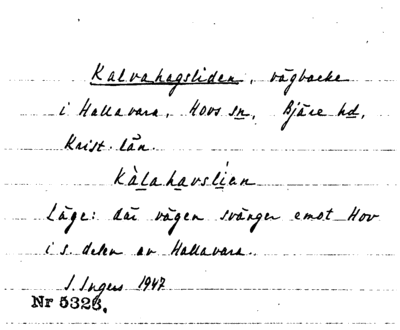 Kalvahagsliden, vägbacke
i Hallavara, Hovs sn, Bjäre hd,
Krist. län.
Kàlahavslian
Läge: där vägen svänger emot Hov
i s. delen av Hallavara.
I. Ingers 1947
Nr 5323.